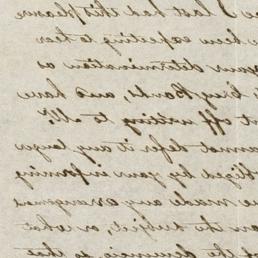 I last had this pleasure
been expecting to hear
your determination as
King Bond, and have
put off writing to Mr.
cannot defer it any longer
obliged by your informing
have made any arrangement
the subject, or what
of the demurrer, so that